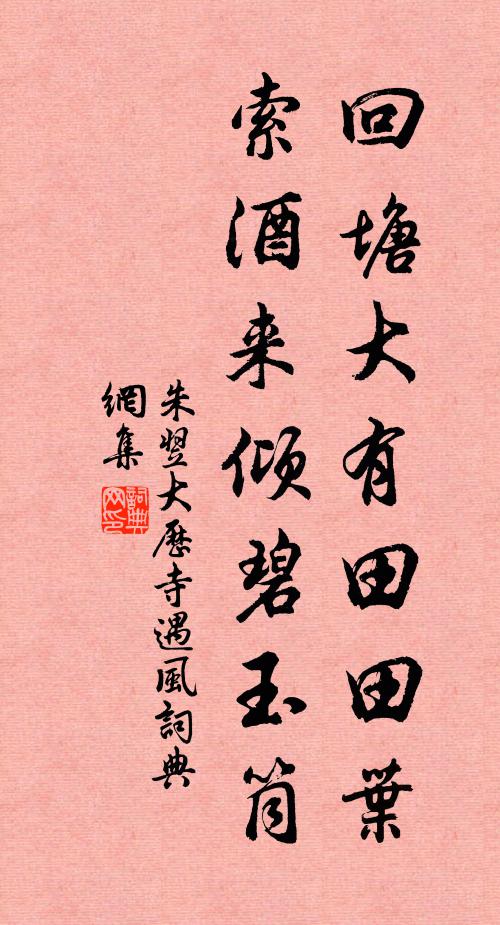 回塘大有田田葉
索酒来傾碧玉筒
朱翌大歷寺遇風詞典
網集
詞典
网印